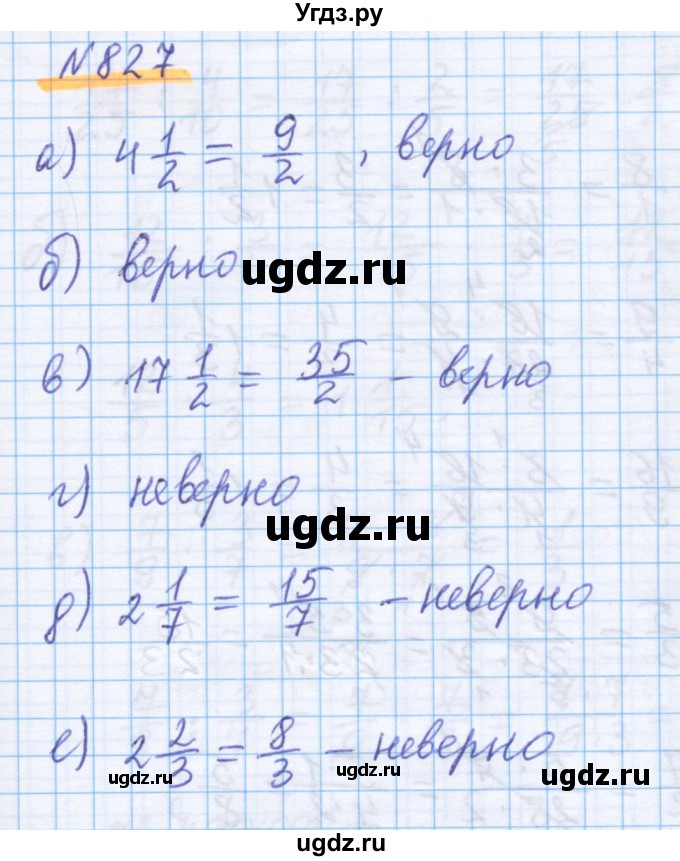 Угдз.ру
N 827
а) 4 1/2 = 9/2 , верно
б) верно
ugdz.ru
в) 17 1/2 = 35/2 – верно
г) неверно
ugdz.ru
д) 2 1/7 = 15/7 – неверно
е) 2 2/3 = 8/3 – неверно
ugdz.ru
ugdz.ru
ugdz.ru
ugdz.ru